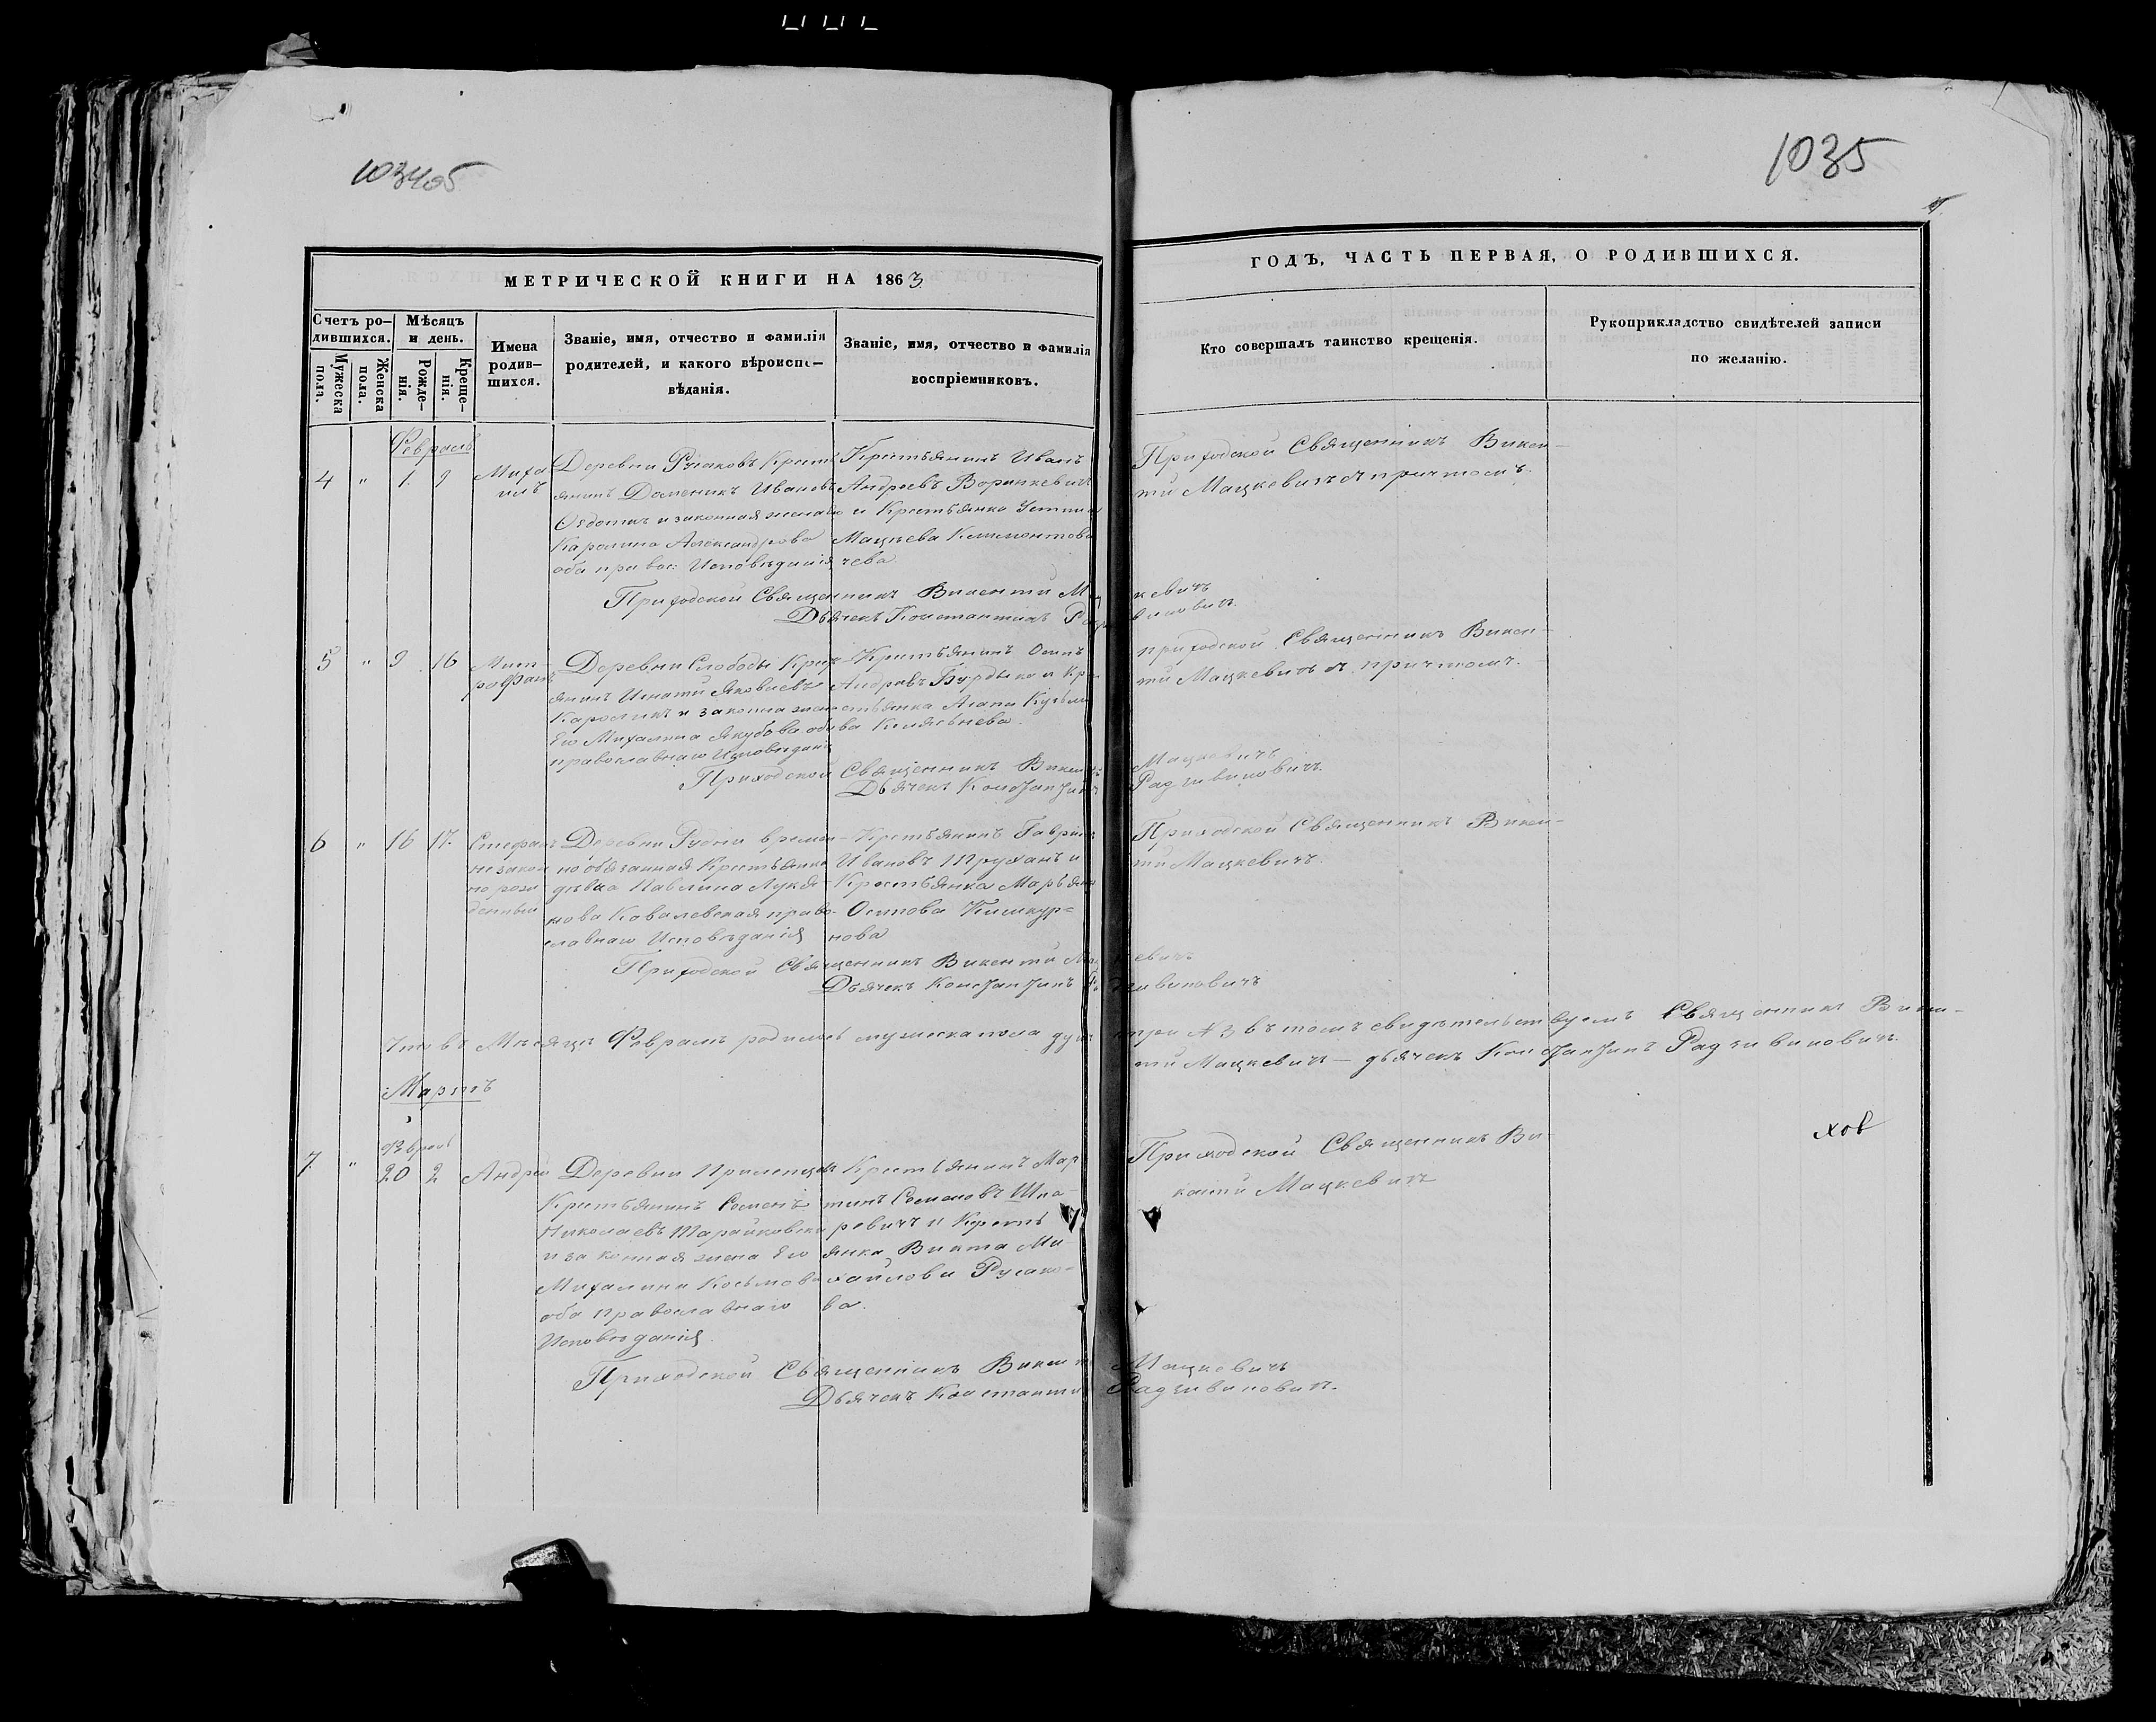 1035
МЕТРИЧЕСКОЙ КНИГИ НА 1863
ГОДЪ, ЧАСТЬ ПЕРВАЯ, О РОДИВШИХСЯ.
Счетъ родившихся.
Мужеска пола.
Женска пола.
Мѣсяцъ и день.
Рожденія.
Крещенія.
Имена родившихся.
Званіе, имя, отчество и фамилія
родителей, и какого вѣроиспо–
вѣданія.
Званіе, имя, отчество и фамилія
воспріемниковъ.
Кто совершалъ таинство крещенія.
Рукоприкладство свидѣтелей записи
по желанію.
Февраль
4 " 1. 9
Миха
илъ
Деревни Русаковъ Кресть
янинъ Доменикъ Ивановъ
и законная жена Его
Каролина Александрова
оба правос: Исповѣданія
Крестьянинъ Иванъ
Андреевъ Воринкевичъ
и Крестьянка Устина
Мацѣева Климонтова
чева
Приходской Священникъ Викен–
тій Мацкевичъ съ причтомъ.
Приходской Священникъ Викентій Мацкевичъ
Дьячекъ Константинъ Радзивиновичъ.
5 " 9 16
Мит–
рофанъ
Деревни Слободы Крест
янинъ Игнатій Яковлевъ
Кароликъ и законна жена
Его Михалина Якубова оба
православнаго Исповѣданія
Крестьянинъ Осипъ
Андреевъ Бурдыко и Кре
стьянка Агапа Кузьмо
ва
Приходской Священникъ Викен–
тій Мацкевичъ съ причтомъ.
Приходской Священникъ Викентій Мацкевичъ
Дьячекъ Константинъ Радзивиновичъ.
6 " 16 17.
Стефанъ
незакон
но рож
денный
Деревни Рудни времен–
но обязанная Крестьянка
дѣвка Павлина Лукья–
нова Ковалевская право–
славнаго Исповѣданія
Крестьянинъ Гавріилъ
Ивановъ Труханъ и
Крестьянка Марьяна
Осипова Кишкур=
нова
Приходской Священникъ Викен–
тій Мацкевичъ.
Приходской Священникъ Викентій Мацкевичъ
Дьячекъ Константинъ Радзивиновичъ
Что въ Мѣсяцѣ Февралѣ родилось мужеска пола душъ три № 3 въ томъ свидѣтельствуемъ Священникъ Викен–
тій Мацкевичъ — дьячекъ Константинъ Радзивиновичъ.
Мартъ
Феврал
7. " 20 2
Андрей
Деревни Прилепцовъ
Крестьянинъ Семенъ
Николаевъ Шарайковскій
и законная жена Его
Михалина Косьмова
оба православнаго
Исповѣданія.
Крестьянинъ Мар
тинъ Семеновъ Шпа–
ревичъ и Кресть
янка Викта Ми
хайлова Русако–
ва.
Приходской Священникъ Ви–
кентій Мацкевичъ
Приходской Священникъ Викентій Мацкевичъ
Дьячекъ Константинъ Радзивиновичъ.